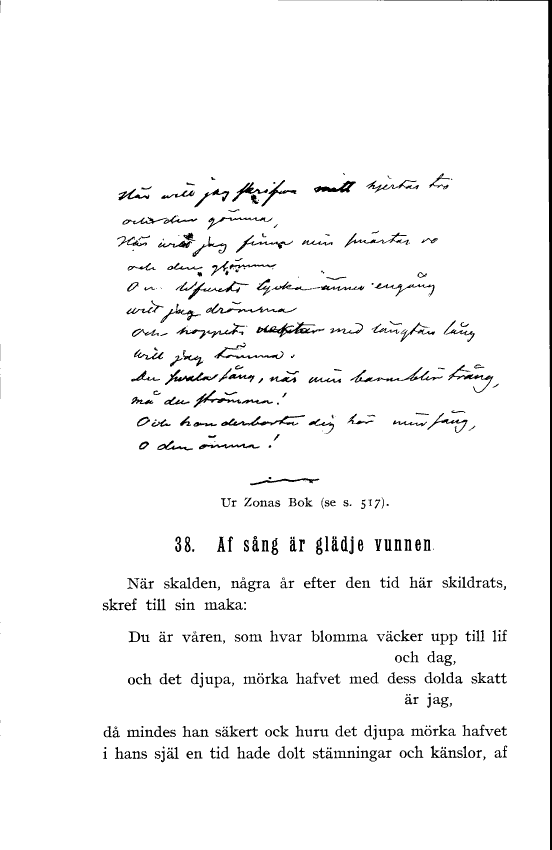 När will jag skrifva mitt hjertas tro
och den gömma,
När will jag finna min smärtas ro
och den glömma
O lifvets lycka ännu engång
will jag drömma
Och hoppets med längtan lång
will jag tömma.
Du sång, när min barm blir trång,
må du strömma!
Och han derborta dig hör min sång,
O den ömma!
Ur Zonas Bok (se s. 517).
38. Af sång är glädje vunnen.
När skalden, några år efter den tid här skildrats,
skref till sin maka:
Du är våren, som hvar blomma väcker upp till lif
och dag,
och det djupa, mörka hafvet med dess dolda skatt
är jag,
då mindes han säkert ock huru det djupa mörka hafvet
i hans själ en tid hade dolt stämningar och känslor, af